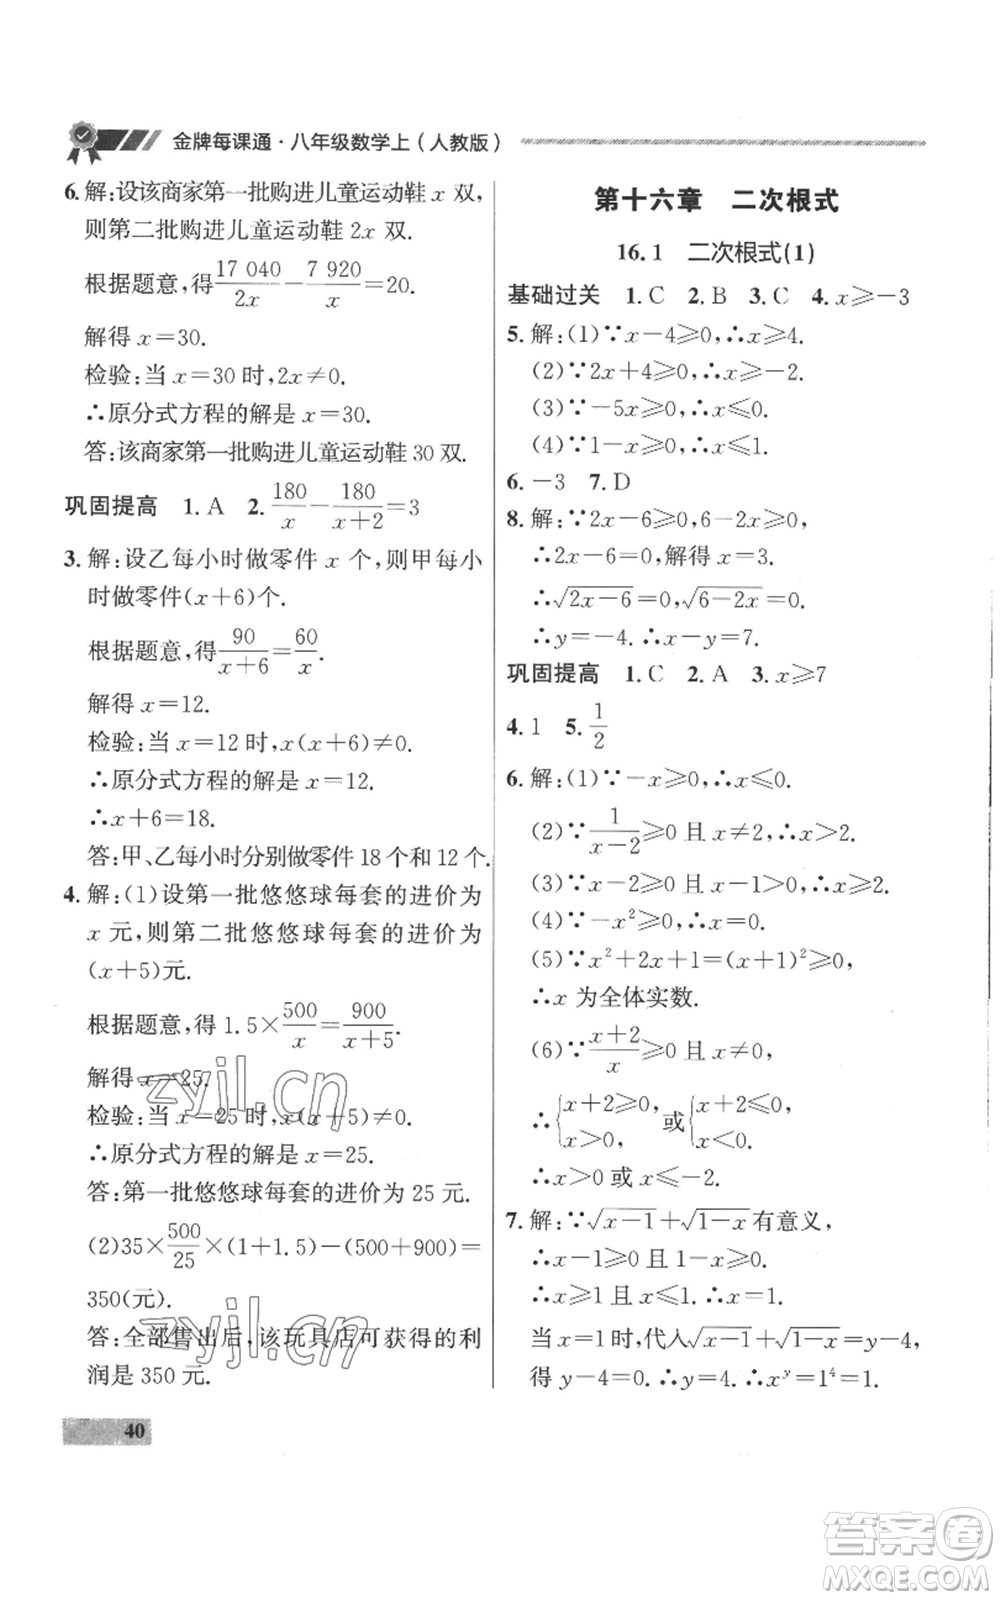 金牌每课通·八年级数学上(人教版)
6. 解:设该商家第一批购进儿童运动鞋 x 双,
则第二批购进儿童运动鞋 2x 双.
根据题意,得 17 040/2x − 7 920/x = 20.
解得 x=30.
检验:当 x=30 时,2x≠0.
∴原分式方程的解是 x=30.
答:该商家第一批购进儿童运动鞋 30 双.
巩固提高 1. A 2. 180/x − 180/(x+2) = 3
3. 解:设乙每小时做零件 x 个,则甲每小
时做零件(x+6)个.
根据题意,得 90/(x+6) = 60/x.
解得 x=12.
检验:当 x=12 时,x(x+6)≠0.
∴原分式方程的解是 x=12.
∴x+6=18.
答:甲、乙每小时分别做零件 18 个和 12 个.
4. 解:(1)设第一批悠悠球每套的进价为
x 元,则第二批悠悠球每套的进价为
(x+5)元.
根据题意,得 1.5×500/x = 900/(x+5).
解得 x=25.
检验:当 x=25 时,x(x+5)≠0.
∴原分式方程的解是 x=25.
答:第一批悠悠球每套的进价为 25 元.
(2)35×500/25×(1+1.5)−(500+900)=
350(元).
答:全部售出后,该玩具店可获得的利
润是 350 元.
40
第十六章 二次根式
16.1 二次根式(1)
基础过关 1. C 2. B 3. C 4. x⩾−3
5. 解:(1)∵x−4⩾0,∴x⩾4.
(2)∵2x+4⩾0,∴x⩾−2.
(3)∵−5x⩾0,∴x⩽0.
(4)∵1−x⩾0,∴x⩽1.
6. −3 7. D
8. 解:∵2x−6⩾0,6−2x⩾0,
∴2x−6=0,解得 x=3.
∴√(2x−6)=0,√(6−2x)=0.
∴y=−4. ∴x−y=7.
巩固提高 1. C 2. A 3. x⩾7
4. 1 5. 1/2
6. 解:(1)∵−x⩾0,∴x⩽0.
(2)∵1/(x−2)⩾0 且 x≠2,∴x>2.
(3)∵x−2⩾0 且 x−1>0,∴x⩾2.
(4)∵−x²⩾0,∴x=0.
(5)∵x²+2x+1=(x+1)²⩾0,
∴x 为全体实数.
(6)∵(x+2)/x⩾0 且 x≠0,
∴{x+2⩾0, x>0 或{x+2⩽0, x<0.
∴x>0 或 x⩽−2.
7. 解:∵√(x−1)+√(1−x)有意义,
∴x−1⩾0 且 1−x⩾0.
∴x⩾1 且 x⩽1. ∴x=1.
当 x=1 时,代入√(x−1)+√(1−x)=y−4,
得 y−4=0. ∴y=4. ∴xʸ=1⁴=1.
zyjl.cn
zyjl.cn
答案卷
MXQE.COM